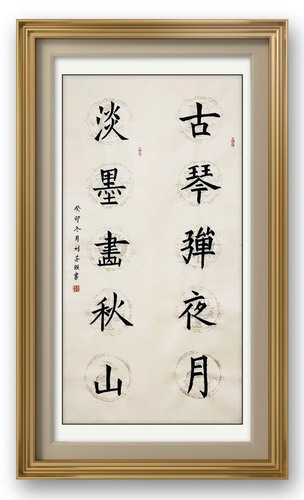 古琴彈夜月
淡墨畫秋山
癸卯冬月刘
書